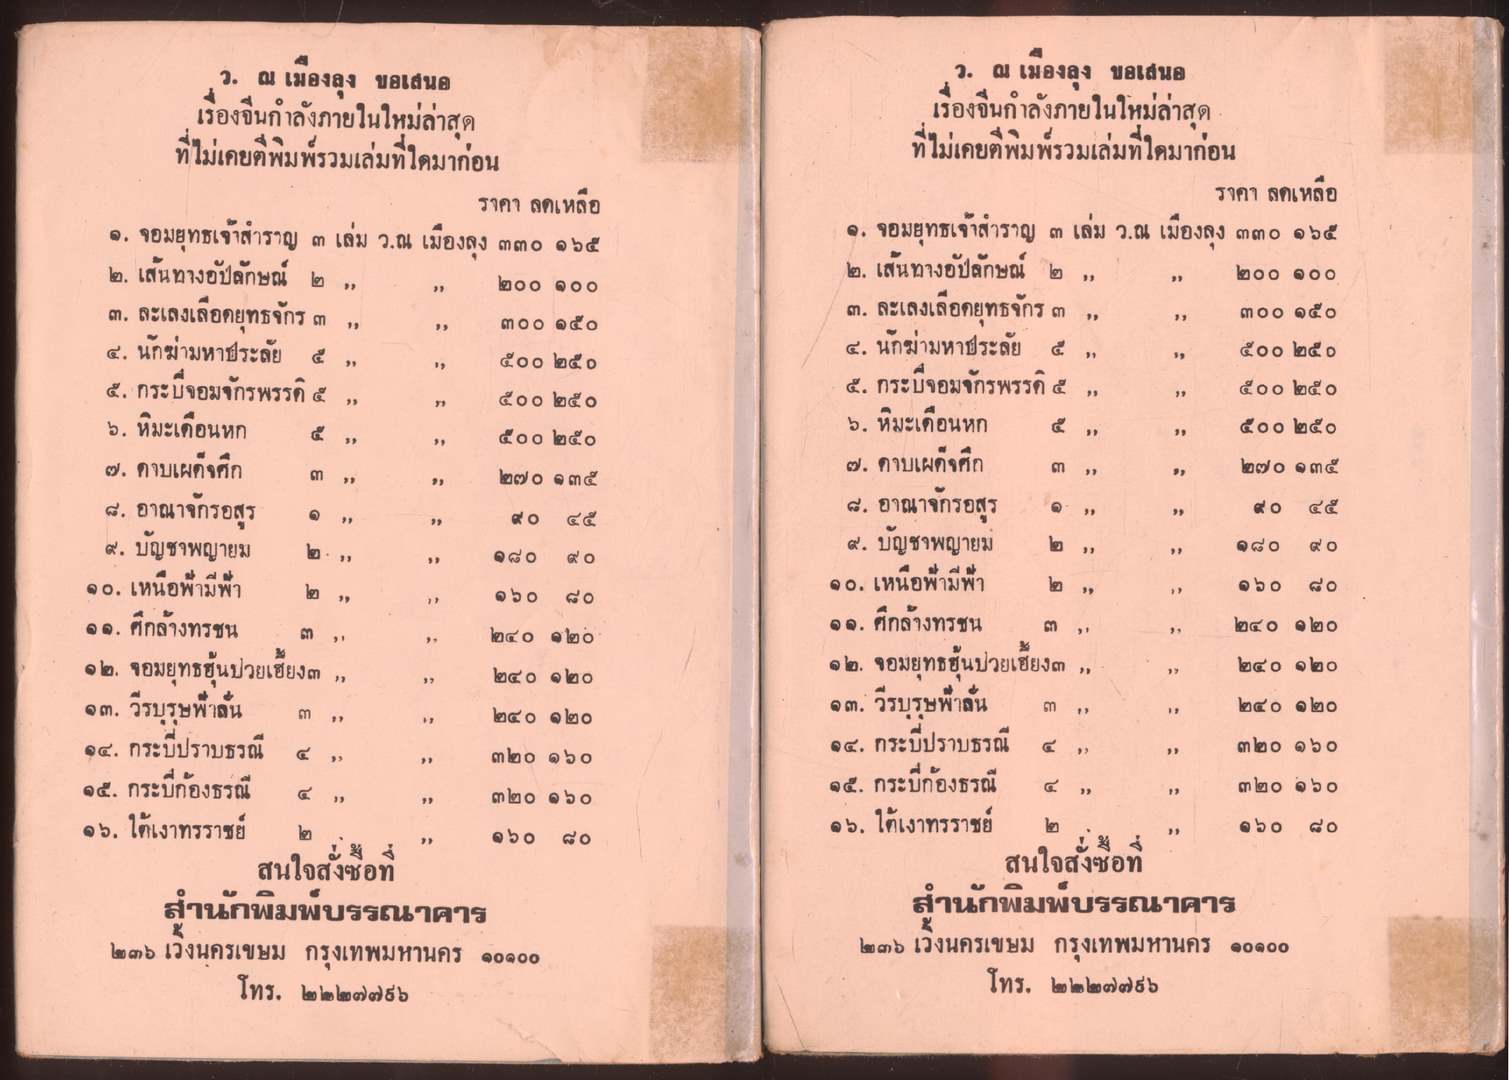 ว. ณ เมืองลุง ขอเสนอ
เรื่องจีนกำลังภายในใหม่ล่าสุด
ที่ไม่เคยตีพิมพ์รวมเล่มที่ใดมาก่อน
ราคา ลดเหลือ
๑. จอมยุทธเจ้าสำราญ ๓ เล่ม ว.ณ เมืองลุง ๓๓๐ ๑๖๕
๒. เส้นทางอัปลักษณ์ ๒ ,, ,, ๒๐๐ ๑๐๐
๓. ละเลงเลือดยุทธจักร ๓ ,, ,, ๓๐๐ ๑๕๐
๔. นักฆ่ามหาประลัย ๕ ,, ,, ๕๐๐ ๒๕๐
๕. กระบี่จอมจักรพรรดิ ๕ ,, ,, ๕๐๐ ๒๕๐
๖. หิมะเดือนหก ๕ ,, ,, ๕๐๐ ๒๕๐
๗. ดาบเผด็จศึก ๓ ,, ,, ๒๗๐ ๑๓๕
๘. อาณาจักรอสูร ๑ ,, ,, ๙๐ ๔๕
๙. บัญชาพญายม ๒ ,, ,, ๑๘๐ ๙๐
๑๐. เหนือฟ้ามีฟ้า ๒ ,, ,, ๑๖๐ ๘๐
๑๑. ศึกล้างทรชน ๓ ,, ,, ๒๔๐ ๑๒๐
๑๒. จอมยุทธฮุ้นปวยเฮี้ยง ๓ ,, ,, ๒๔๐ ๑๒๐
๑๓. วีรบุรุษฟ้าลั่น ๓ ,, ,, ๒๔๐ ๑๒๐
๑๔. กระบี่ปราบธรณี ๔ ,, ,, ๓๒๐ ๑๖๐
๑๕. กระบี่ก้องธรณี ๔ ,, ,, ๓๒๐ ๑๖๐
๑๖. ใต้เงาทรราชย์ ๒ ,, ๑๖๐ ๘๐
สนใจสั่งซื้อที่
สำนักพิมพ์บรรณาคาร
๒๓๖ เวิ้งนครเขษม กรุงเทพมหานคร ๑๐๑๐๐
โทร. ๒๒๒๗๗๙๖
ว. ณ เมืองลุง ขอเสนอ
เรื่องจีนกำลังภายในใหม่ล่าสุด
ที่ไม่เคยตีพิมพ์รวมเล่มที่ใดมาก่อน
ราคา ลดเหลือ
๑. จอมยุทธเจ้าสำราญ ๓ เล่ม ว.ณ เมืองลุง ๓๓๐ ๑๖๕
๒. เส้นทางอัปลักษณ์ ๒ ,, ,, ๒๐๐ ๑๐๐
๓. ละเลงเลือดยุทธจักร ๓ ,, ,, ๓๐๐ ๑๕๐
๔. นักฆ่ามหาประลัย ๕ ,, ,, ๕๐๐ ๒๕๐
๕. กระบี่จอมจักรพรรดิ ๕ ,, ,, ๕๐๐ ๒๕๐
๖. หิมะเดือนหก ๕ ,, ,, ๕๐๐ ๒๕๐
๗. ดาบเผด็จศึก ๓ ,, ,, ๒๗๐ ๑๓๕
๘. อาณาจักรอสูร ๑ ,, ,, ๙๐ ๔๕
๙. บัญชาพญายม ๒ ,, ,, ๑๘๐ ๙๐
๑๐. เหนือฟ้ามีฟ้า ๒ ,, ,, ๑๖๐ ๘๐
๑๑. ศึกล้างทรชน ๓ ,, ,, ๒๔๐ ๑๒๐
๑๒. จอมยุทธฮุ้นปวยเฮี้ยง ๓ ,, ,, ๒๔๐ ๑๒๐
๑๓. วีรบุรุษฟ้าลั่น ๓ ,, ,, ๒๔๐ ๑๒๐
๑๔. กระบี่ปราบธรณี ๔ ,, ,, ๓๒๐ ๑๖๐
๑๕. กระบี่ก้องธรณี ๔ ,, ,, ๓๒๐ ๑๖๐
๑๖. ใต้เงาทรราชย์ ๒ ,, ๑๖๐ ๘๐
สนใจสั่งซื้อที่
สำนักพิมพ์บรรณาคาร
๒๓๖ เวิ้งนครเขษม กรุงเทพมหานคร ๑๐๑๐๐
โทร. ๒๒๒๗๗๙๖